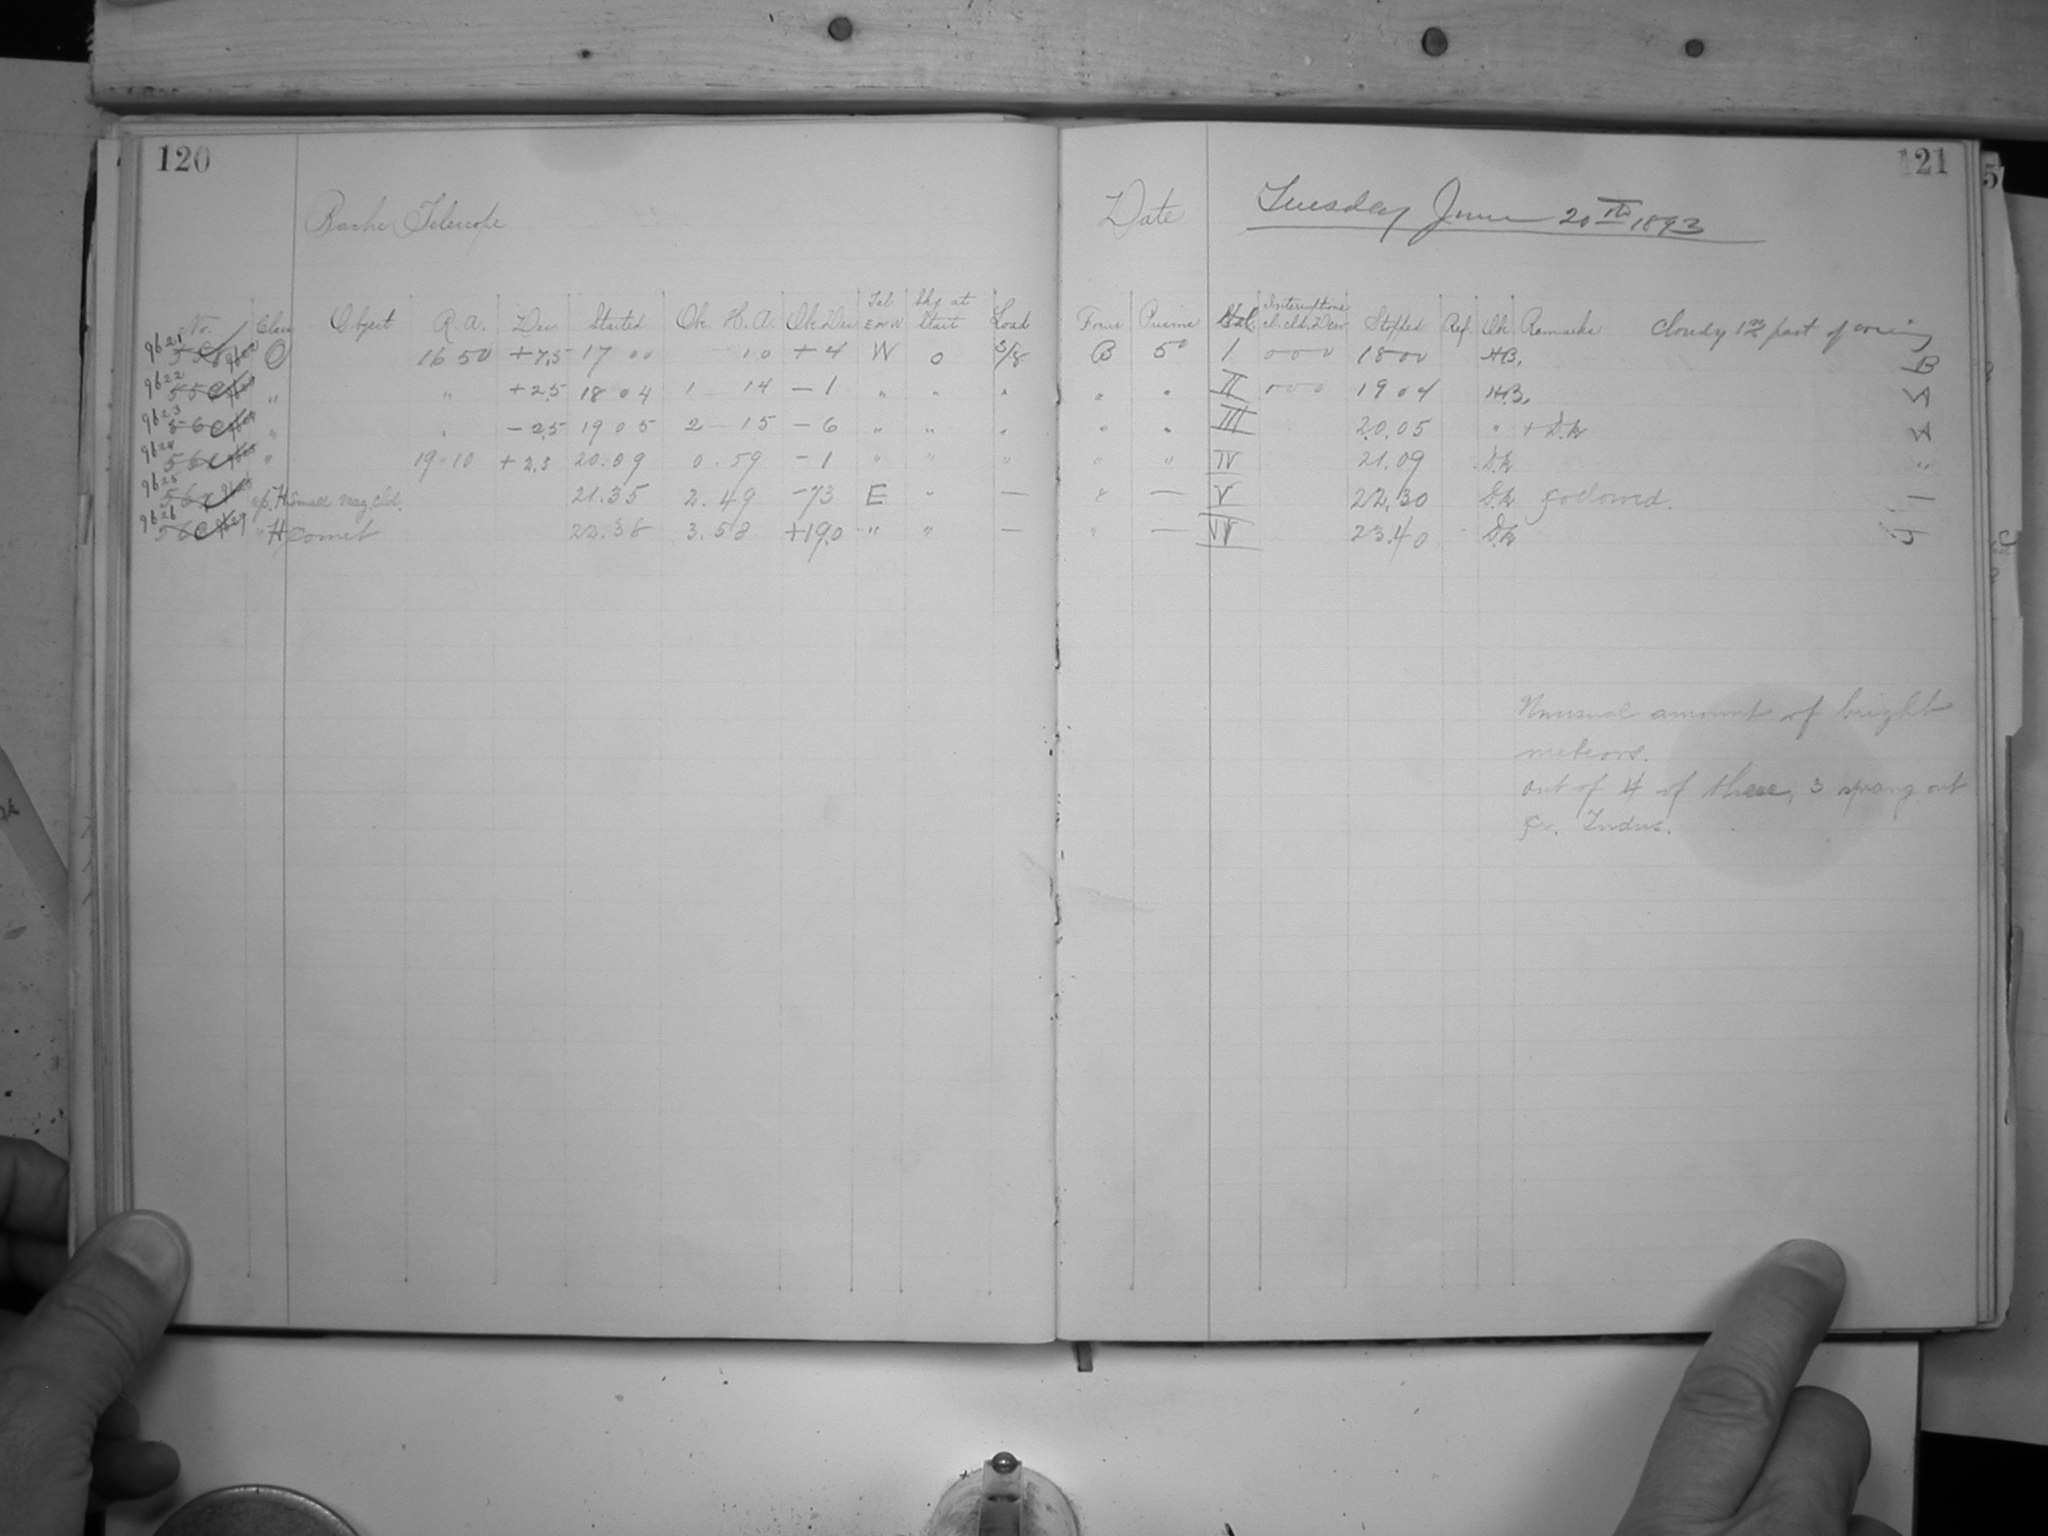 120
Bache Telescope
No. Class Object R.A. Dec Started Ob. H.A. Ob. Dec Tel. E or W Sky at Start Load
9621 O 16 50 +7.5 17 00 10 +4 W 0 3/8
9622 " " +2.5 18 04 1 14 -1 " " "
9623 " " -2.5 19 05 2 15 -6 " " "
9624 " 19 10 +2.5 20.09 0.59 -1 " " "
9625 sp. H Small mag. cld. 21.35 2.49 -73 E " —
9626 " H Comet 22.38 3.58 +19.0 " " —
121
Date Tuesday June 20th 1893
Focus Prisms Stopped Ref. Ob. Remarks Cloudy 1st part of evening
B 5° I 0 0 0 18 00 HB. B
" " II 0 0 0 19 04 HB.
" " III 20.05 " + D.k
" " IV 21.09 D.k "
" — V 22.30 D.k
" — VI 23.40 D.k
Unusual amount of bright
meteors.
out of 4 of these, 3 sprang out
fr. Indus.